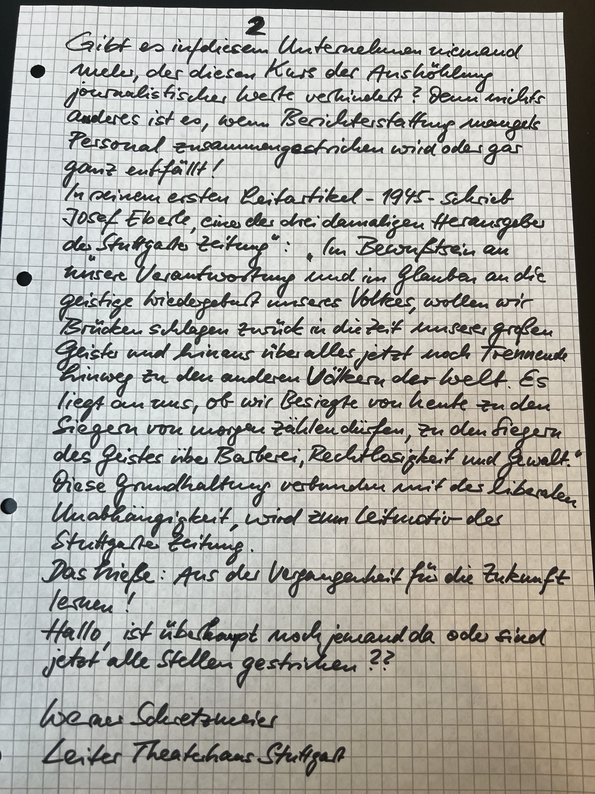 2
Gibt es in diesem Unternehmen niemand
mehr, der diesen Kurs der Aushöhlung
journalistischer Werte verhindert? Denn nichts
anderes ist es, wenn Berichterstattung mangels
Personal zusammengestrichen wird oder gar
ganz entfällt!
In seinem ersten Leitartikel - 1945 - schrieb
Josef Eberle, einer der drei damaligen Herausgeber
der Stuttgarter Zeitung": "Im Bewußtsein an
unsere Verantwortung und im Glauben an die
geistige Wiedergeburt unseres Volkes, wollen wir
Brücken schlagen zurück in die Zeit unserer großen
Geister und hinaus über alles jetzt noch Trennende
hinweg zu den anderen Völkern der Welt. Es
liegt an uns, ob wir Besiegte von heute zu den
Siegern von morgen zählen dürfen, zu den Siegern
des Geistes über Barberei, Rechtlosigkeit und Gewalt."
Diese Grundhaltung verbunden mit der liberalen
Unabhängigkeit, wird zum Leitmotiv der
Stuttgarter Zeitung.
Das hieße: Aus der Vergangenheit für die Zukunft
lernen!
Hallo, ist überhaupt noch jemand da oder sind
jetzt alle Stellen gestrichen??
Werner Schretzmeier
Leiter Theaterhaus Stuttgart